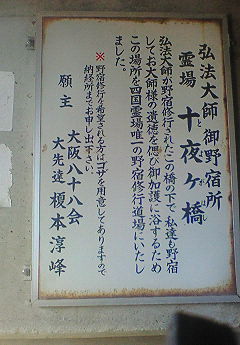 弘法大師 御野宿所
霊場 十夜ヶ橋
弘法大師が野宿修行されたこの橋の下で、私達も野宿
してお大師様の遺徳を偲び御加護に浴するため
この場所を四国霊場唯一の野宿修行道場にいたし
ました。
※野宿修行を希望される方はゴザを用意してありますので
納経所までお申し出下さい。
願主 大阪八十八会
大先達 榎本淳峰